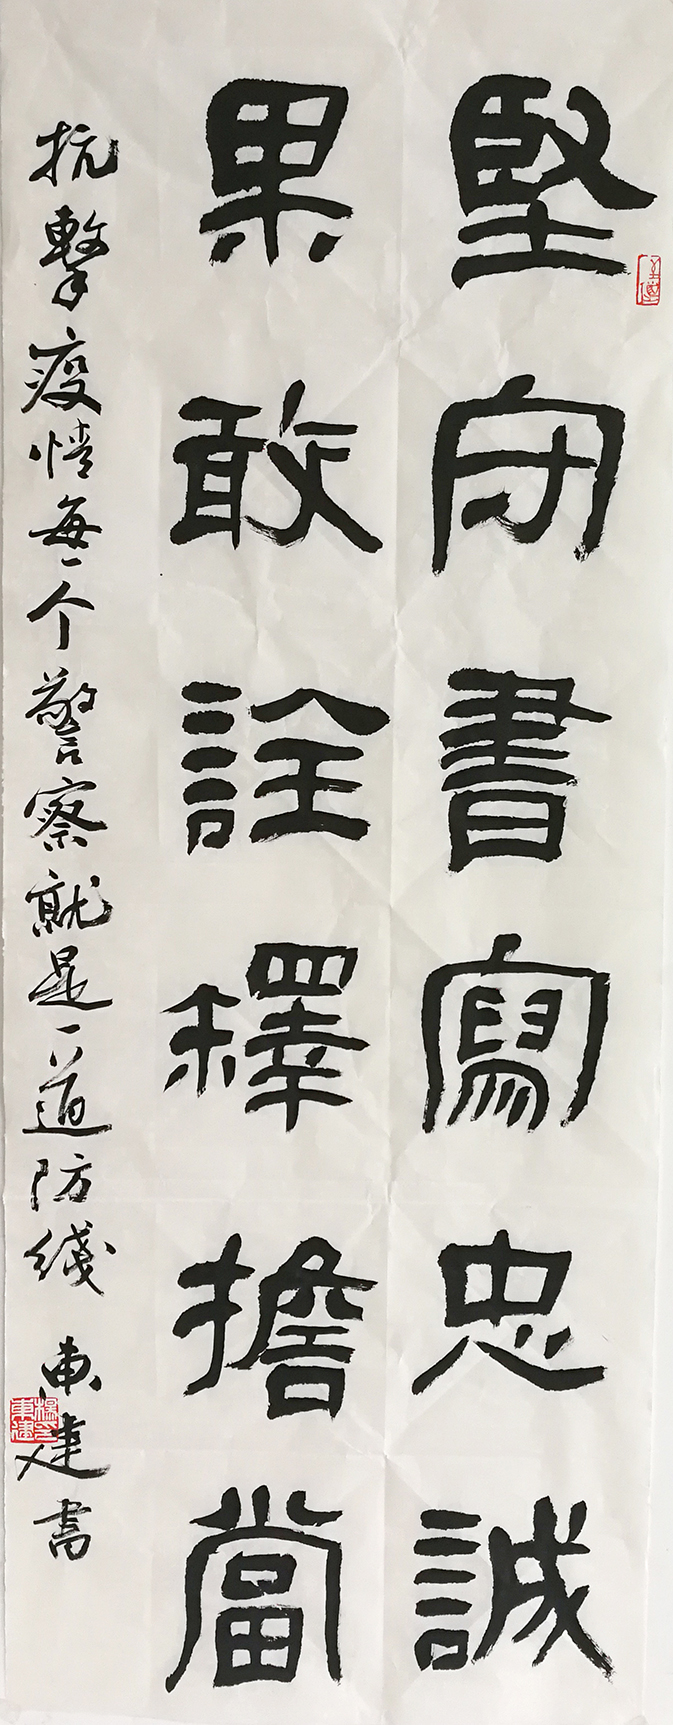 堅守書寫忠誠
果敢詮釋擔當
抗擊疫情每一个警察就是一道防綫 東建書